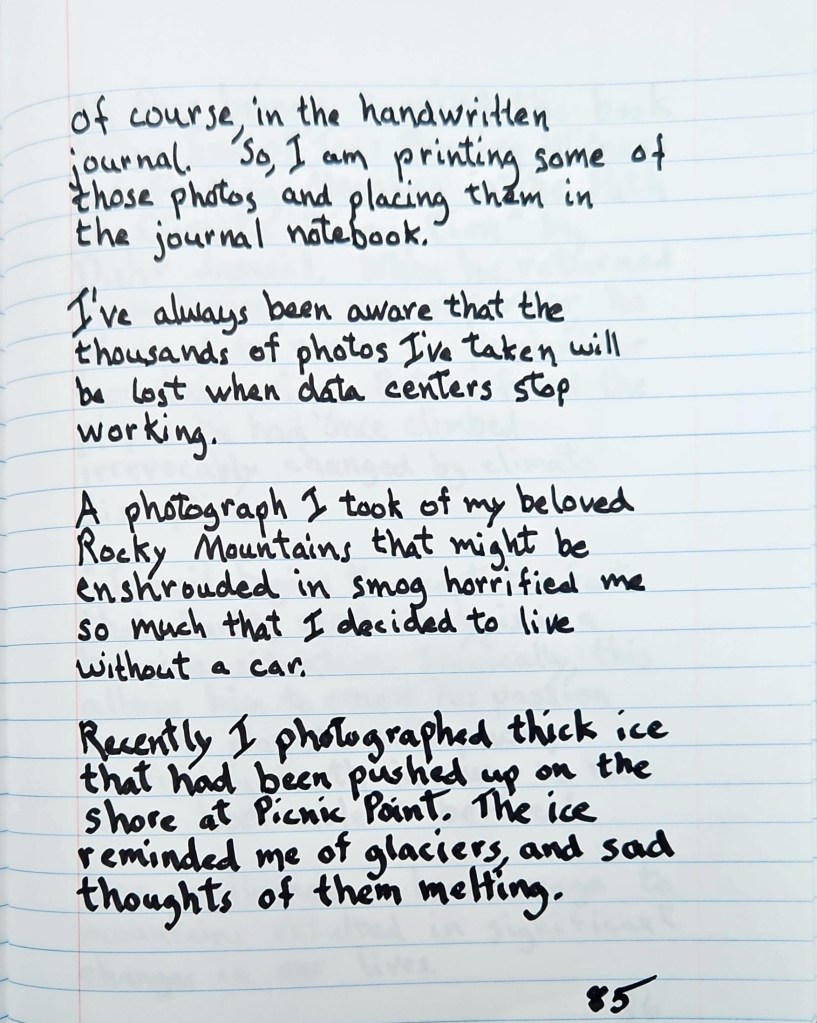 of course, in the handwritten
journal. So, I am printing some of
those photos and placing them in
the journal notebook.
I've always been aware that the
thousands of photos I've taken will
be lost when data centers stop
working.
A photograph I took of my beloved
Rocky Mountains that might be
enshrouded in smog horrified me
so much that I decided to live
without a car.
Recently I photographed thick ice
that had been pushed up on the
shore at Picnic Point. The ice
reminded me of glaciers, and sad
thoughts of them melting.
85